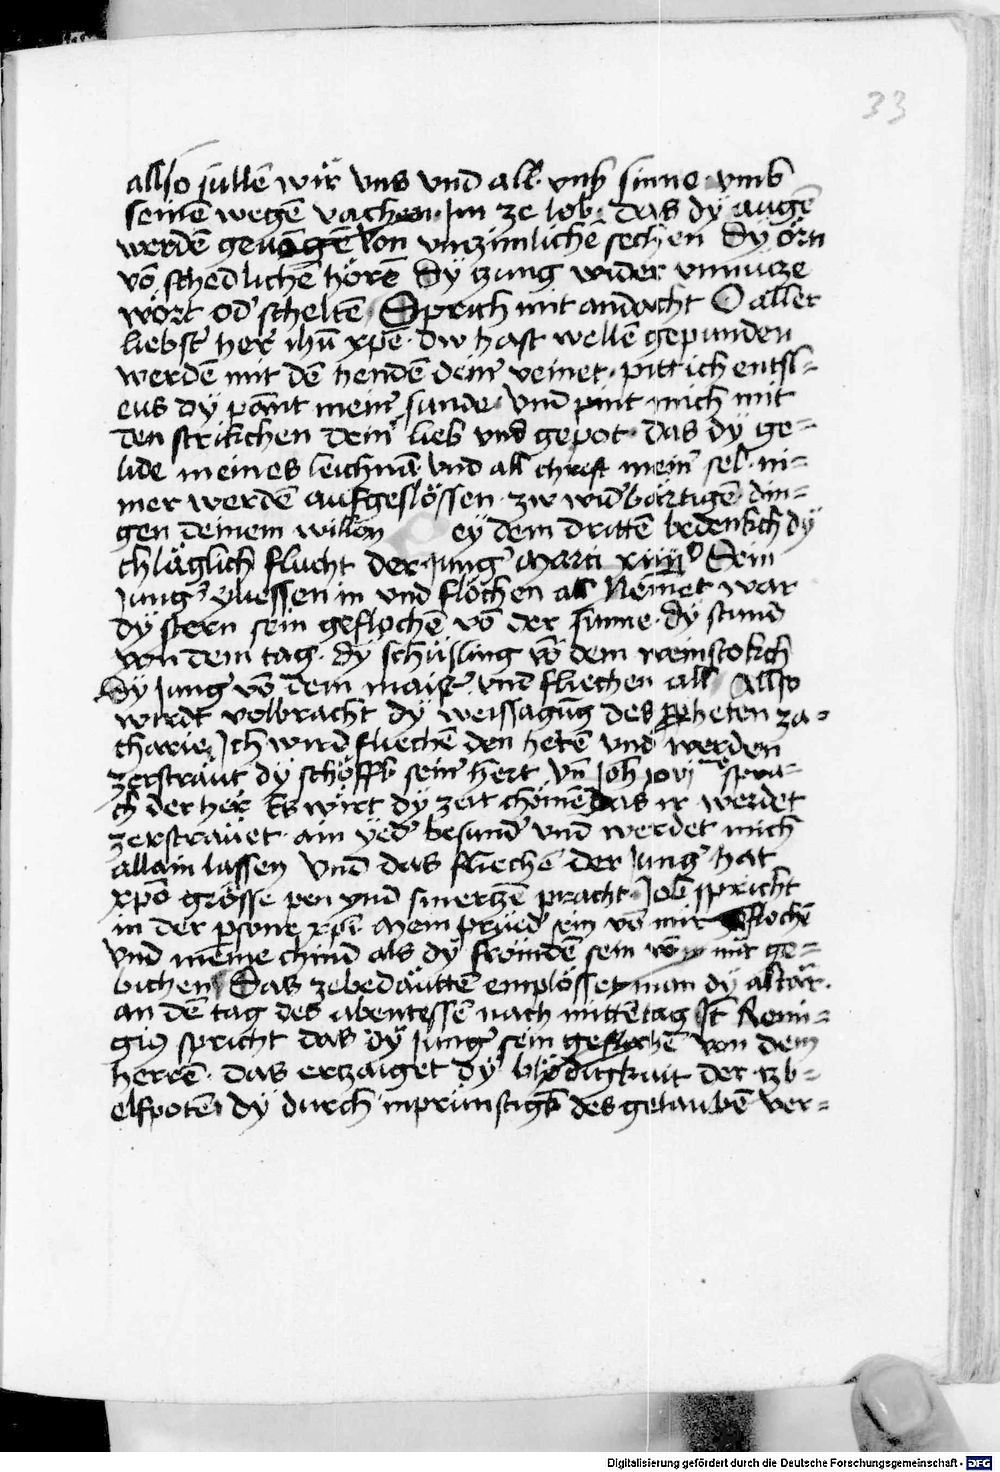 33
allso süllē wir vns vnd all vnß sinne vmb
seinē wegē vachen Im ze lob das dÿ augē
werdē gevāgē von vnzimlichē sechen Dÿ örn
võ schedlichē hörē Dÿ tzung wider vnnucze
wört od' scheltē Sprich mit andacht O aller
liebst' her' ihū xpē dw hast wellē gepunden
werdē mit dē hendē dein' veinet pitt ich entsl-
eus dÿ pānt mein' sunde vnd pint mich mit
den strikchen dein' lieb vnd gepot das dÿ ge-
lide meines leichnā vnd all chreft mein' sel ni-
mer werdē aufgeslössen zw wid'bärtigē din-
gen deinem willen ey dem drittē bedenkch dÿ
chläglich flucht der Jung' Marci xiiij° Sein
Jung' vliessen in vnd flöchen all Nēmet war
dÿ stern sein geflochē võ der sunne dÿ stund
von dem tag dÿ schüsling võ dem weinstokch
Dÿ Jung' võ dem maist' vnd fliechen all Allso
wirdt volbracht dÿ weissagūg des ppheten za-
charie Ich wird fliechē den hertē vnd werden
zersträut dÿ schöff sein' hert vn̄ Joh xvj sprа-
ch der her Es wirt dÿ zeit chömē das ir werdet
zerströuet ain ÿed' besund' vnd werdet mich
allain lassen Vnd das fliechē der Jung' hat
xpō grösse pen vnd smertzē pracht Job spricht
in der psone xpi Mein prüed' sein võ mir geflochē
vnd meine chind als dÿ fröundē sein võ mir ge-
bichen Das zebedäuttē emplösset man dÿ altär
an dē tag des abentessē nach mittentag Ist Remi-
gi9 spricht das dÿ Jung' sein geflochē von dem
herrē das ertzaiget dÿ blödigkait der tzb-
elfpotē dÿ durch inprünstigk des gelaubē ver-
Digitalisierung gefördert durch die Deutsche Forschungsgemeinschaft - DFG